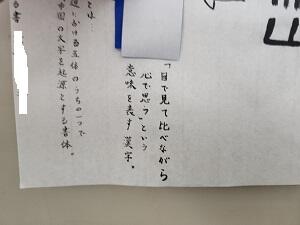 「目で見て比べながら
心で思う」という
意味を表す漢字。
とは…
における五体のうちの一つで
中国の文字を起源とする書体。
書